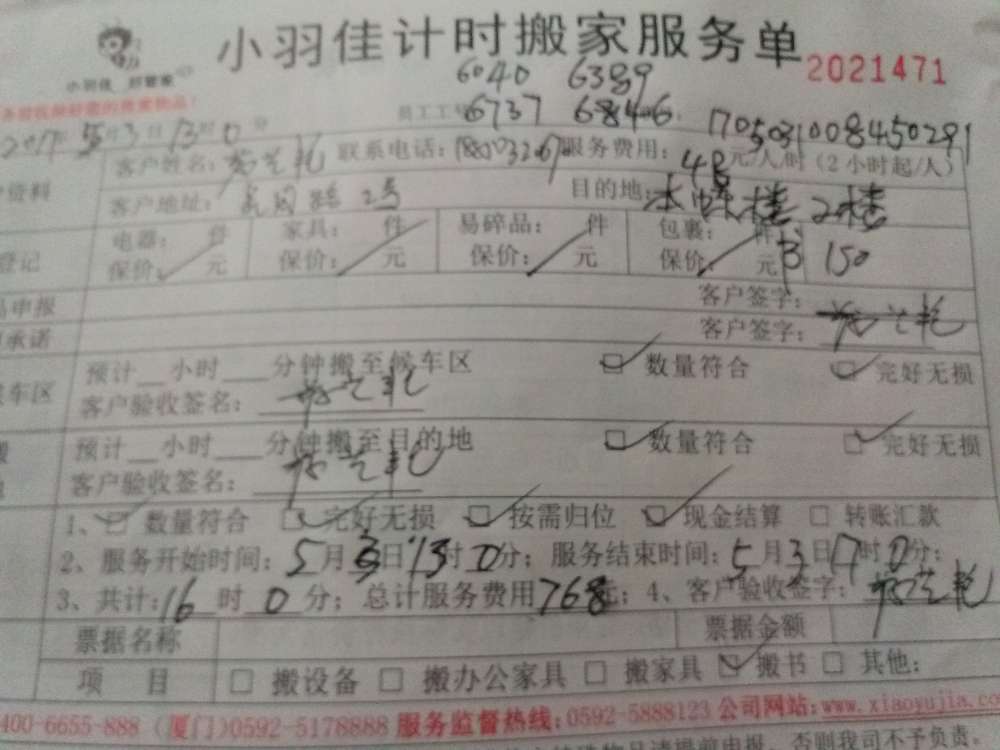 小羽佳计时搬家服务单
小羽佳 好管家
2021471
6040 6389
员工工号 6737 6846
1705031008450291
2017年5月3日13时0分
客户姓名： 联系电话： 服务费用：48元/人/时（2小时起/人）
资料
客户地址： 2号 目的地： 楼2楼
电器： 件 家具： 件 易碎品： 件 包裹： 件
登记
保价： 元 保价： 元 保价： 元 保价： 元 150
申报 客户签字：
承诺 客户签字：
预计__小时___分钟搬至候车区 数量符合 完好无损
车区
客户验收签名：
预计__小时___分钟搬至目的地 数量符合 完好无损
客户验收签名：
1、 数量符合 完好无损 按需归位 现金结算 转账汇款
2、服务开始时间：5月3日13时0分；服务结束时间：5月3日17时0分；
3、共计：16时0分；总计服务费用768元；4、客户验收签字：
票据名称 票据金额
项 目 搬设备 搬办公家具 搬家具 搬书 其他：
400-6655-888（厦门）0592-5178888 服务监督热线：0592-5888123 公司网站：www.xiaoyujia.co
否则我司不予负责。